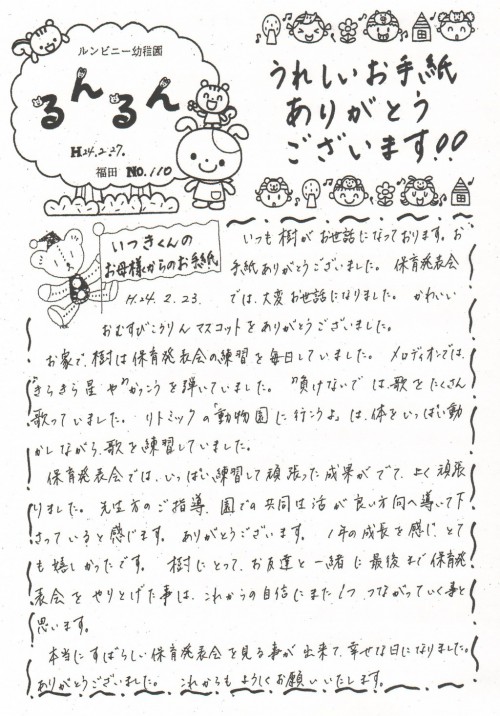 ルンビニー幼稚園
るんるん
H24.2.27.
福田 No.110
うれしいお手紙
ありがとう
ございます!!
いつきくんの
お母様からのお手紙
H.24.2.23.
いつも樹がお世話になっております。お
手紙ありがとうございました。 保育発表会
では、大変お世話になりました。 かわいい
おむすびころりんマスコットをありがとうございました。
お家で、樹は保育発表会の練習を毎日していました。 メロディオンでは、
"きらきら星 や"かっこう を弾いていました。 "負けないで は、歌をたくさん
歌っていました。 リトミックの「動物園に行こうよ」は、体をいっぱい動
かしながら、歌を練習していました。
保育発表会では、いっぱい練習して頑張った成果がでて、よく頑張
りました。 先生方のご指導、園での共同生活が良い方向へ導いて下
さっていると感じます。 ありがとうございます。 1年の成長を感じ、とて
も嬉しかったです。 樹にとって、お友達と一緒に最後まで保育発
表会をやりとげた事は、これからの自信にまた1つ、つながっていく事と
思います。
本当にすばらしい保育発表会を見る事が出来て、幸せな日になりました。
ありがとうございました。 これからもよろしくお願いいたします。